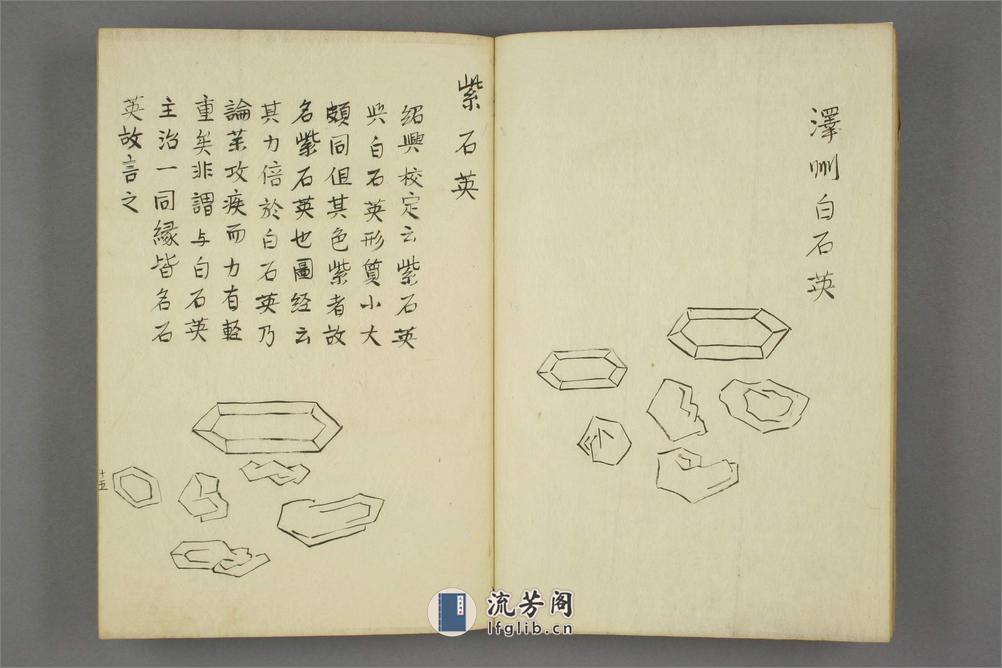 澤州白石英
紫石英
紹興校定云紫石英
与白石英形質小大
頗同但其色紫者故
名紫石英也圖经云
其力倍於白石英乃
論荣攻疾而力有輕
重矣非謂与白石英
主治一同縁皆名石
英故言之
十五
流芳阁
lfglib.cn